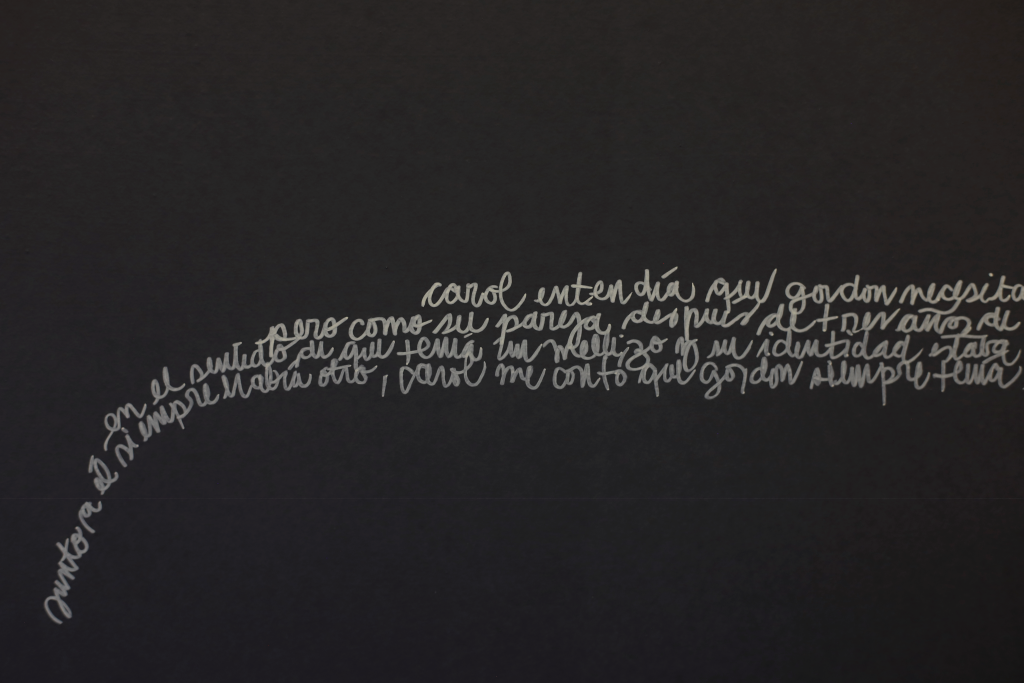 carol entendía que gordon necesita
pero como su pareja despues de tres años de
en el sentido de que tenía un mellizo y su identidad estaba
junto a él siempre habría otro, carol me contó que gordon siempre tenía